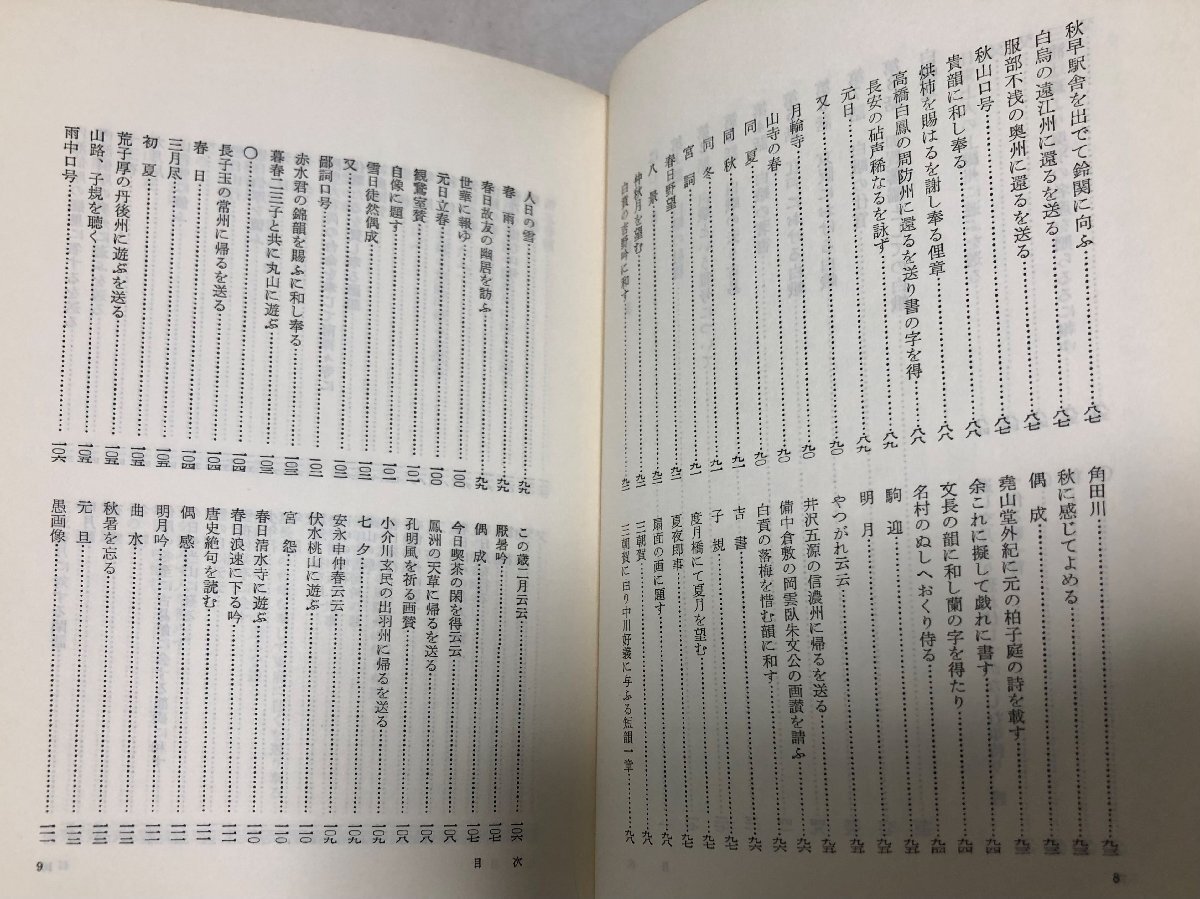 秋早駅舎を出でて鈴関に向ふ……八七
白烏の遠江州に還るを送る……八七
服部不浅の奥州に還るを送る……八七
秋山口号……八七
貴韻に和し奉る……八八
烘柿を賜はるを謝し奉る俚章……八八
高橋白鳳の周防州に還るを送り書の字を得……八八
長安の砧声稀なるを詠ず……八九
元日……八九
又……九〇
月輪寺……九〇
山寺の春……九〇
同夏……九〇
同秋……九一
同冬……九一
宮詞……九一
春日野望
仲秋月を望む
八景
白賁の吉野吟に和す
角田川……九三
秋に感じてよめる……九三
偶成……九三
堯山堂外紀に元の柏子庭の詩を載す……九三
余これに擬して戯れに書す……九四
文長の韻に和し蘭の字を得たり……九四
名村のぬしへおくり侍る……九五
駒迎……九五
明月……九五
やつがれ云云……九五
井沢五源の信濃州に帰るを送る……九五
備中倉敷の岡雲臥朱文公の画讃を請ふ……九六
白賁の落梅を惜む韻に和す……九六
古書……九六
子規……九七
度月橋にて夏月を望む……九七
夏夜即事……九七
扇面の画に題す……九七
三朝賀……九八
三朝賀に因り中川好議に与ふる短韻一章……九八
8
人日の雪……九九
春雨……九九
春日故友の幽居を訪ふ……九九
世華に報ゆ……一〇〇
元日立春……一〇〇
観鵞室賛……一〇一
自像に題す……一〇一
雪日徒然偶成……一〇二
又……一〇二
鄙詞口号……一〇二
赤水君の錦韻を賜ふに和し奉る……一〇三
暮春二三子と共に丸山に遊ぶ……一〇三
〇……一〇四
長子玉の常州に帰るを送る……一〇四
春日……一〇四
三月尽……一〇四
初夏……一〇五
荒子厚の丹後州に遊ぶを送る……一〇五
山路、子規を聴く……一〇五
雨中口号……一〇六
この歳二月云云……一〇六
厭暑吟……一〇七
偶成……一〇七
今日喫茶の閑を得云云……一〇八
鳳洲の天草に帰るを送る……一〇八
孔明風を祈る画賛……一〇八
小介川玄民の出羽州に帰るを送る……一〇九
七夕……一〇九
安永申仲春云云……一〇九
伏水桃山に遊ぶ……一〇九
宮怨……一一〇
春日清水寺に遊ぶ……一一〇
春日浪速に下る吟……一一一
唐史絶句を読む……一一一
偶感……一一一
明月吟……一一二
曲水……一一二
秋暑を忘る……一一三
元旦……一一三
愚画像
目次
9